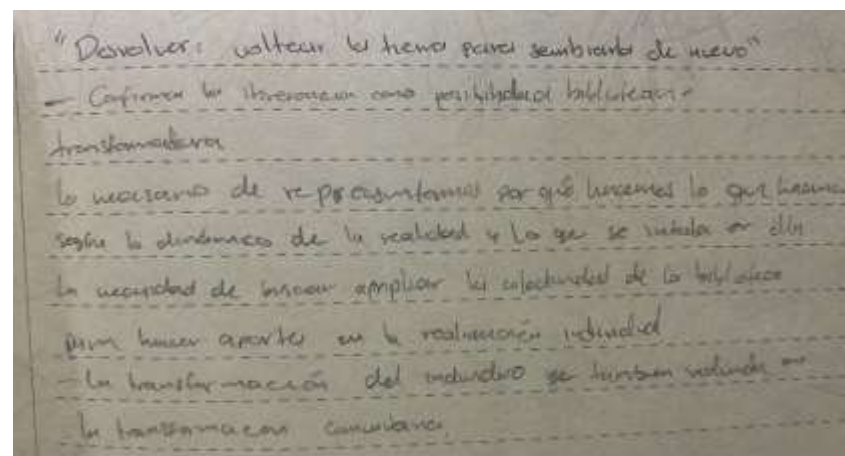 "Devolver: voltear la tierra para sembrarla de nuevo"
- Confirmar la itinerancia como posibilidad bibliotecaria
transformadora
lo necesario de repreguntarnos por qué hacemos lo que hacemos
según la dinámica de la realidad y lo que se instala en ella
La necesidad de buscar ampliar la colectividad de la biblioteca
para hacer aportes en la realización individual
- La transformación del individuo que también redunda en
la transformación comunitaria.